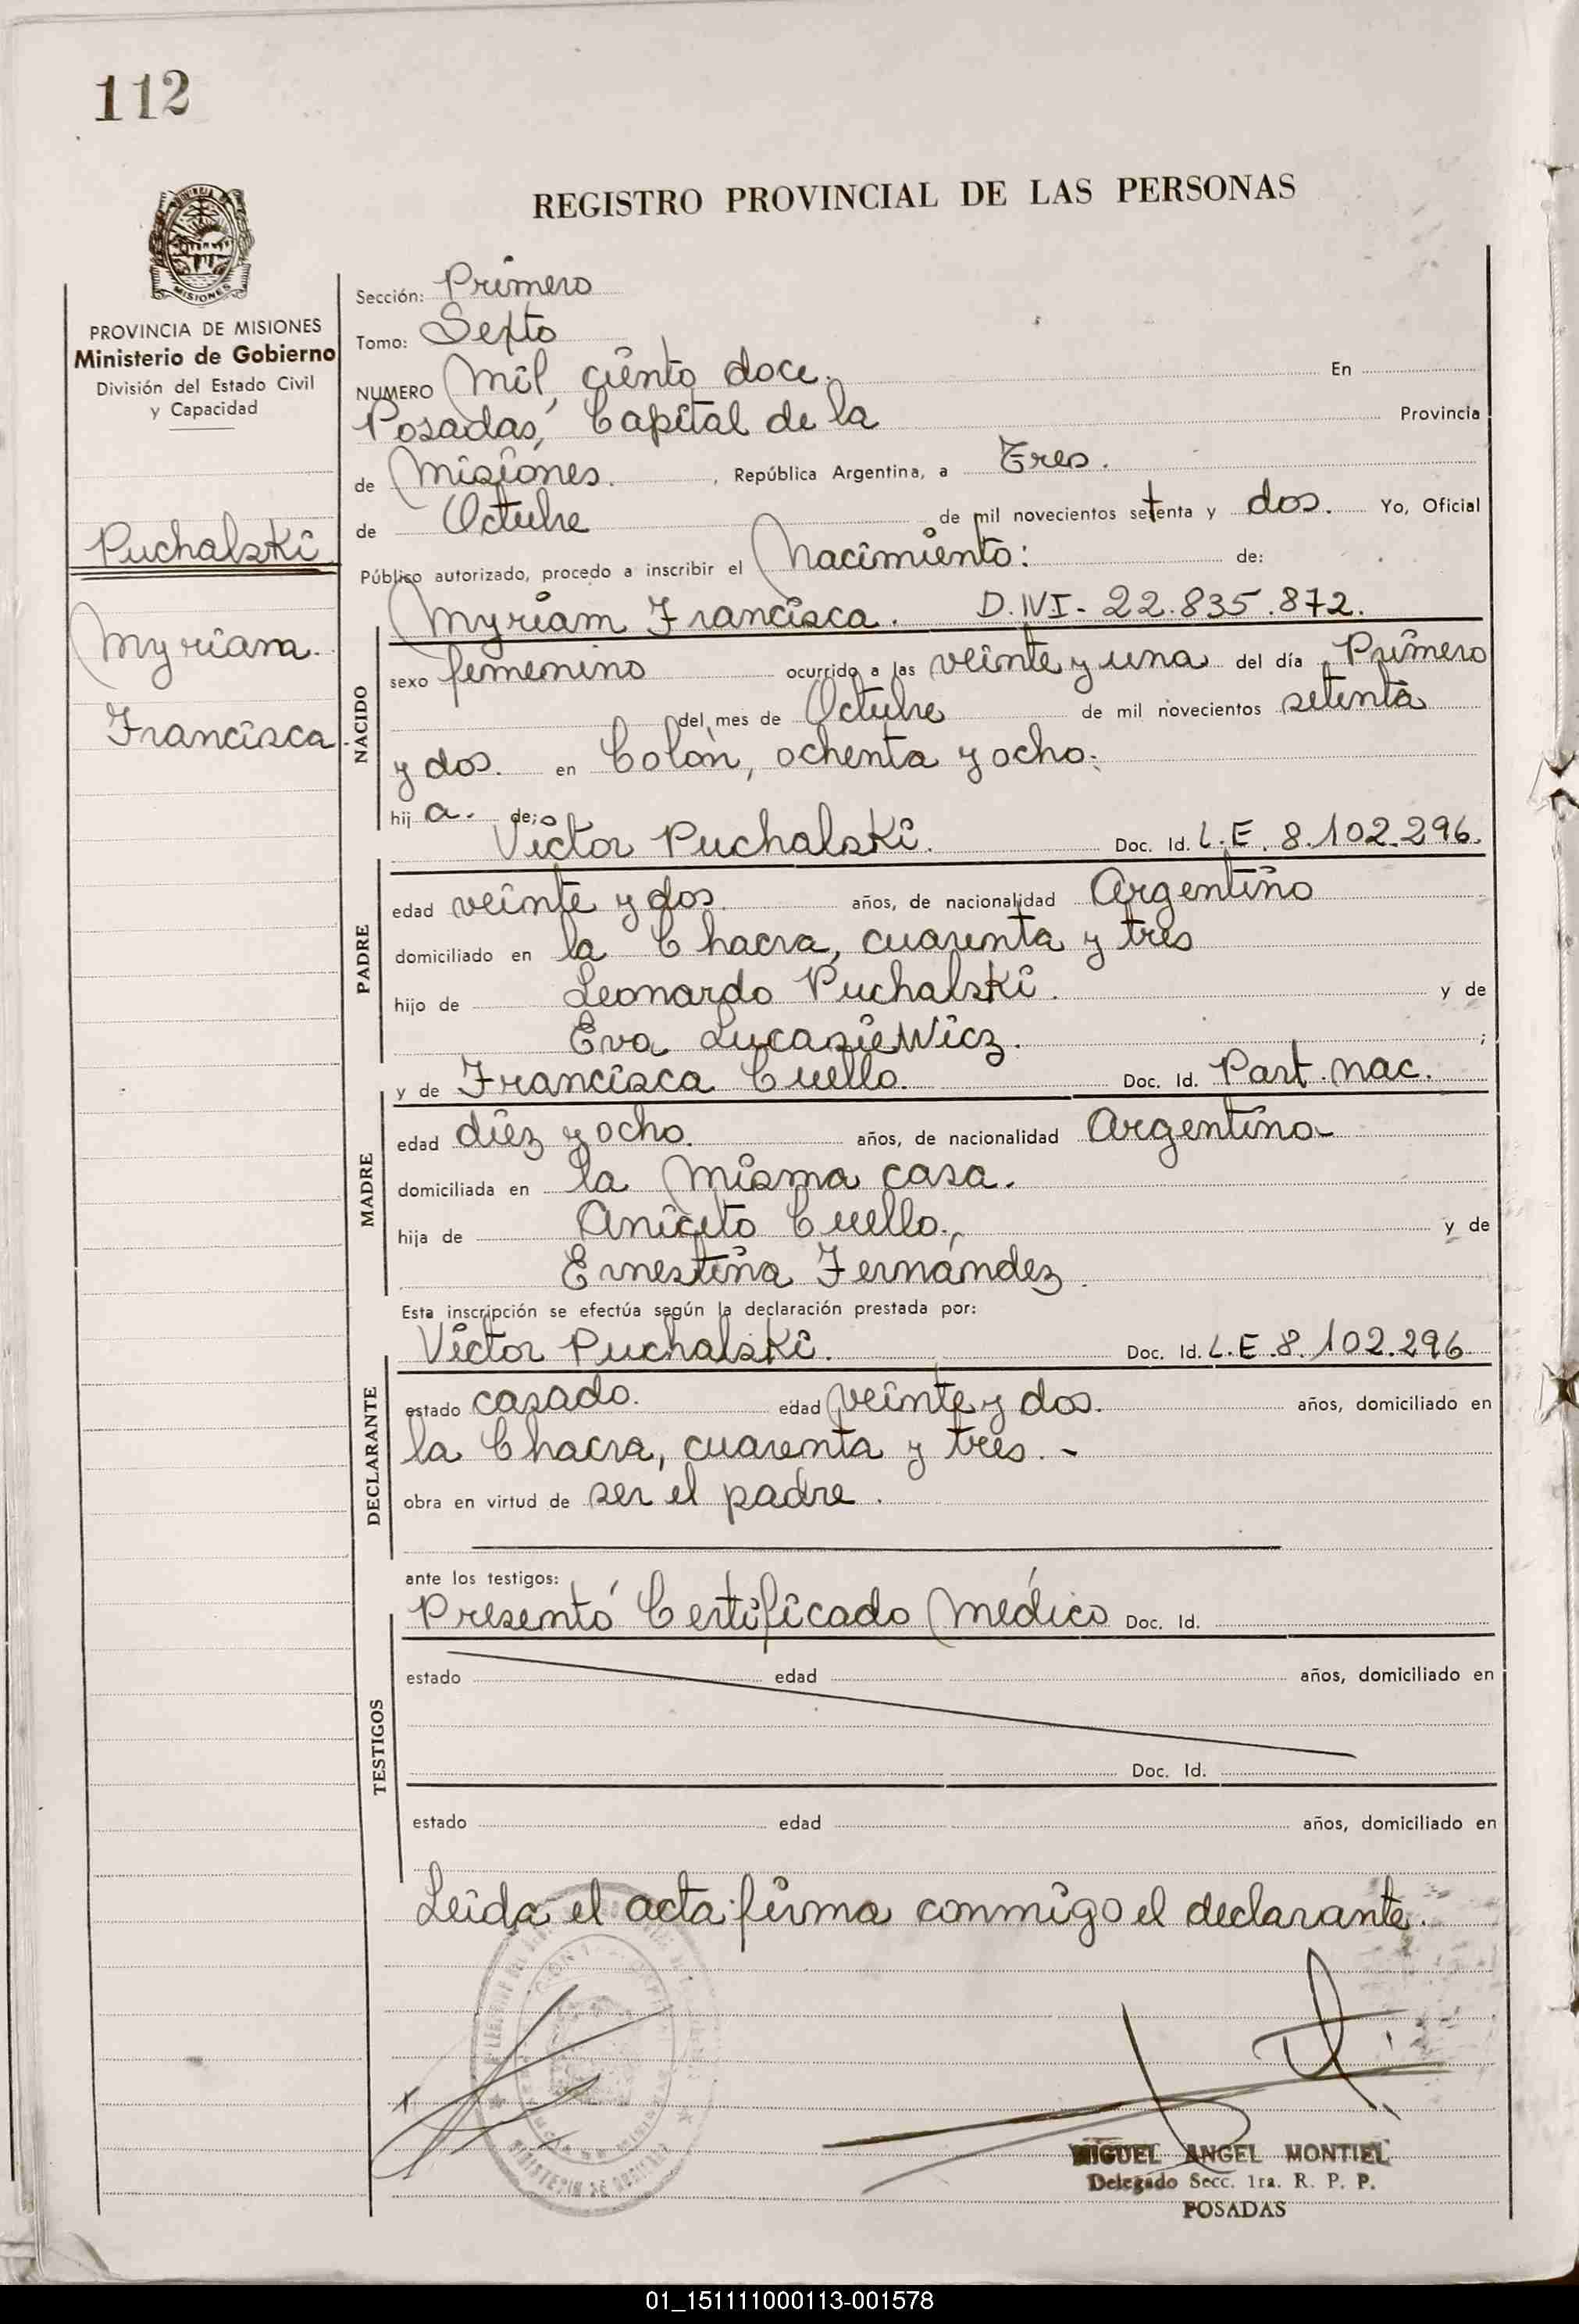 112
REGISTRO PROVINCIAL DE LAS PERSONAS
MISIONES
PROVINCIA DE MISIONES
Ministerio de Gobierno
División del Estado Civil
y Capacidad
Puchalski
Myriam
Francisca
Sección: Primero
Tomo: Sexto
NUMERO Mil, ciento doce. En
Posadas, Capital de la Provincia
de Misiones. , República Argentina, a Tres.
de Octubre de mil novecientos setenta y dos. Yo, Oficial
Público autorizado, procedo a inscribir el Nacimiento: de:
Myriam Francisca. D.N.I- 22.835.872.
NACIDO
sexo femenino ocurrido a las veinte y una del día Primero
del mes de Octubre de mil novecientos setenta
y dos. en Colón, ochenta y ocho.
hij a. de:
Victor Puchalski. Doc. Id. L.E. 8.102.296.
PADRE
edad veinte y dos años, de nacionalidad Argentino
domiciliado en la Chacra, cuarenta y tres
hijo de Leonardo Puchalski. y de
Eva Lucasiewicz. ;
y de Francisca Cuello. Doc. Id. Part. nac.
MADRE
edad diez y ocho. años, de nacionalidad Argentina
domiciliada en la misma casa.
hija de Aniceto Cuello., y de
Ernestina Fernández
Esta inscripción se efectúa según la declaración prestada por:
Victor Puchalski. Doc. Id. L.E.8.102.296
DECLARANTE
estado casado. edad veinte y dos. años, domiciliado en
la Chacra, cuarenta y tres. -
obra en virtud de ser el padre.
ante los testigos:
Presentó Certificado Médico Doc. Id.
TESTIGOS
estado edad años, domiciliado en
Doc. Id.
estado edad años, domiciliado en
Leída el acta firma conmigo el declarante.
MIGUEL ANGEL MONTIEL
Delegado Secc. 1ra. R. P. P.
POSADAS
01_151111000113-001578